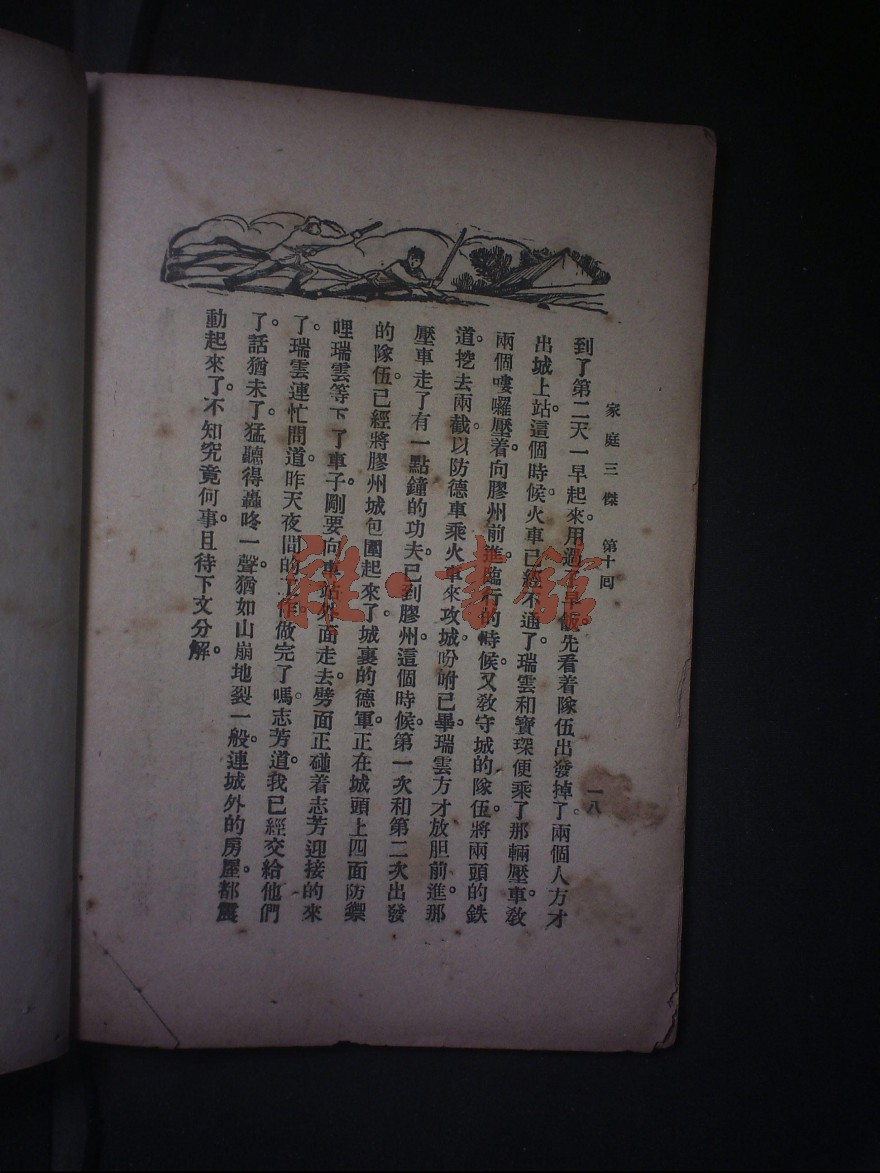 家庭三傑 第十回 一八
到了第二天一早起來。用過早飯。先看着隊伍出發掉了。兩個人方才
出城上站。這個時候。火車已經不通了。瑞雲和寶琛便乘了那輛壓車。敎
兩個嘍囉壓着向膠州前進。臨行的時候。又敎守城的隊伍。將兩頭的鉄
道。挖去兩截。以防德車乘火車來攻城。吩咐已畢。瑞雲方才放胆前進。那
壓車走了有一點鐘的功夫。已到膠州。這個時候。第一次和第二次出發
的隊伍。已經將膠州城包圍起來了。城裏的德軍。正在城頭上四面防禦
哩。瑞雲等下了車子。剛要向車站外面走去。劈面正碰着志芳迎接的來
了。瑞雲連忙問道。昨天夜間的工作做完了嗎。志芳道。我已經交給他們
了。話猶未了。猛聽得轟咚一聲。猶如山崩地裂一般。連城外的房屋。都震
動起來了。不知究竟何事。且待下文分解。
雅·書館